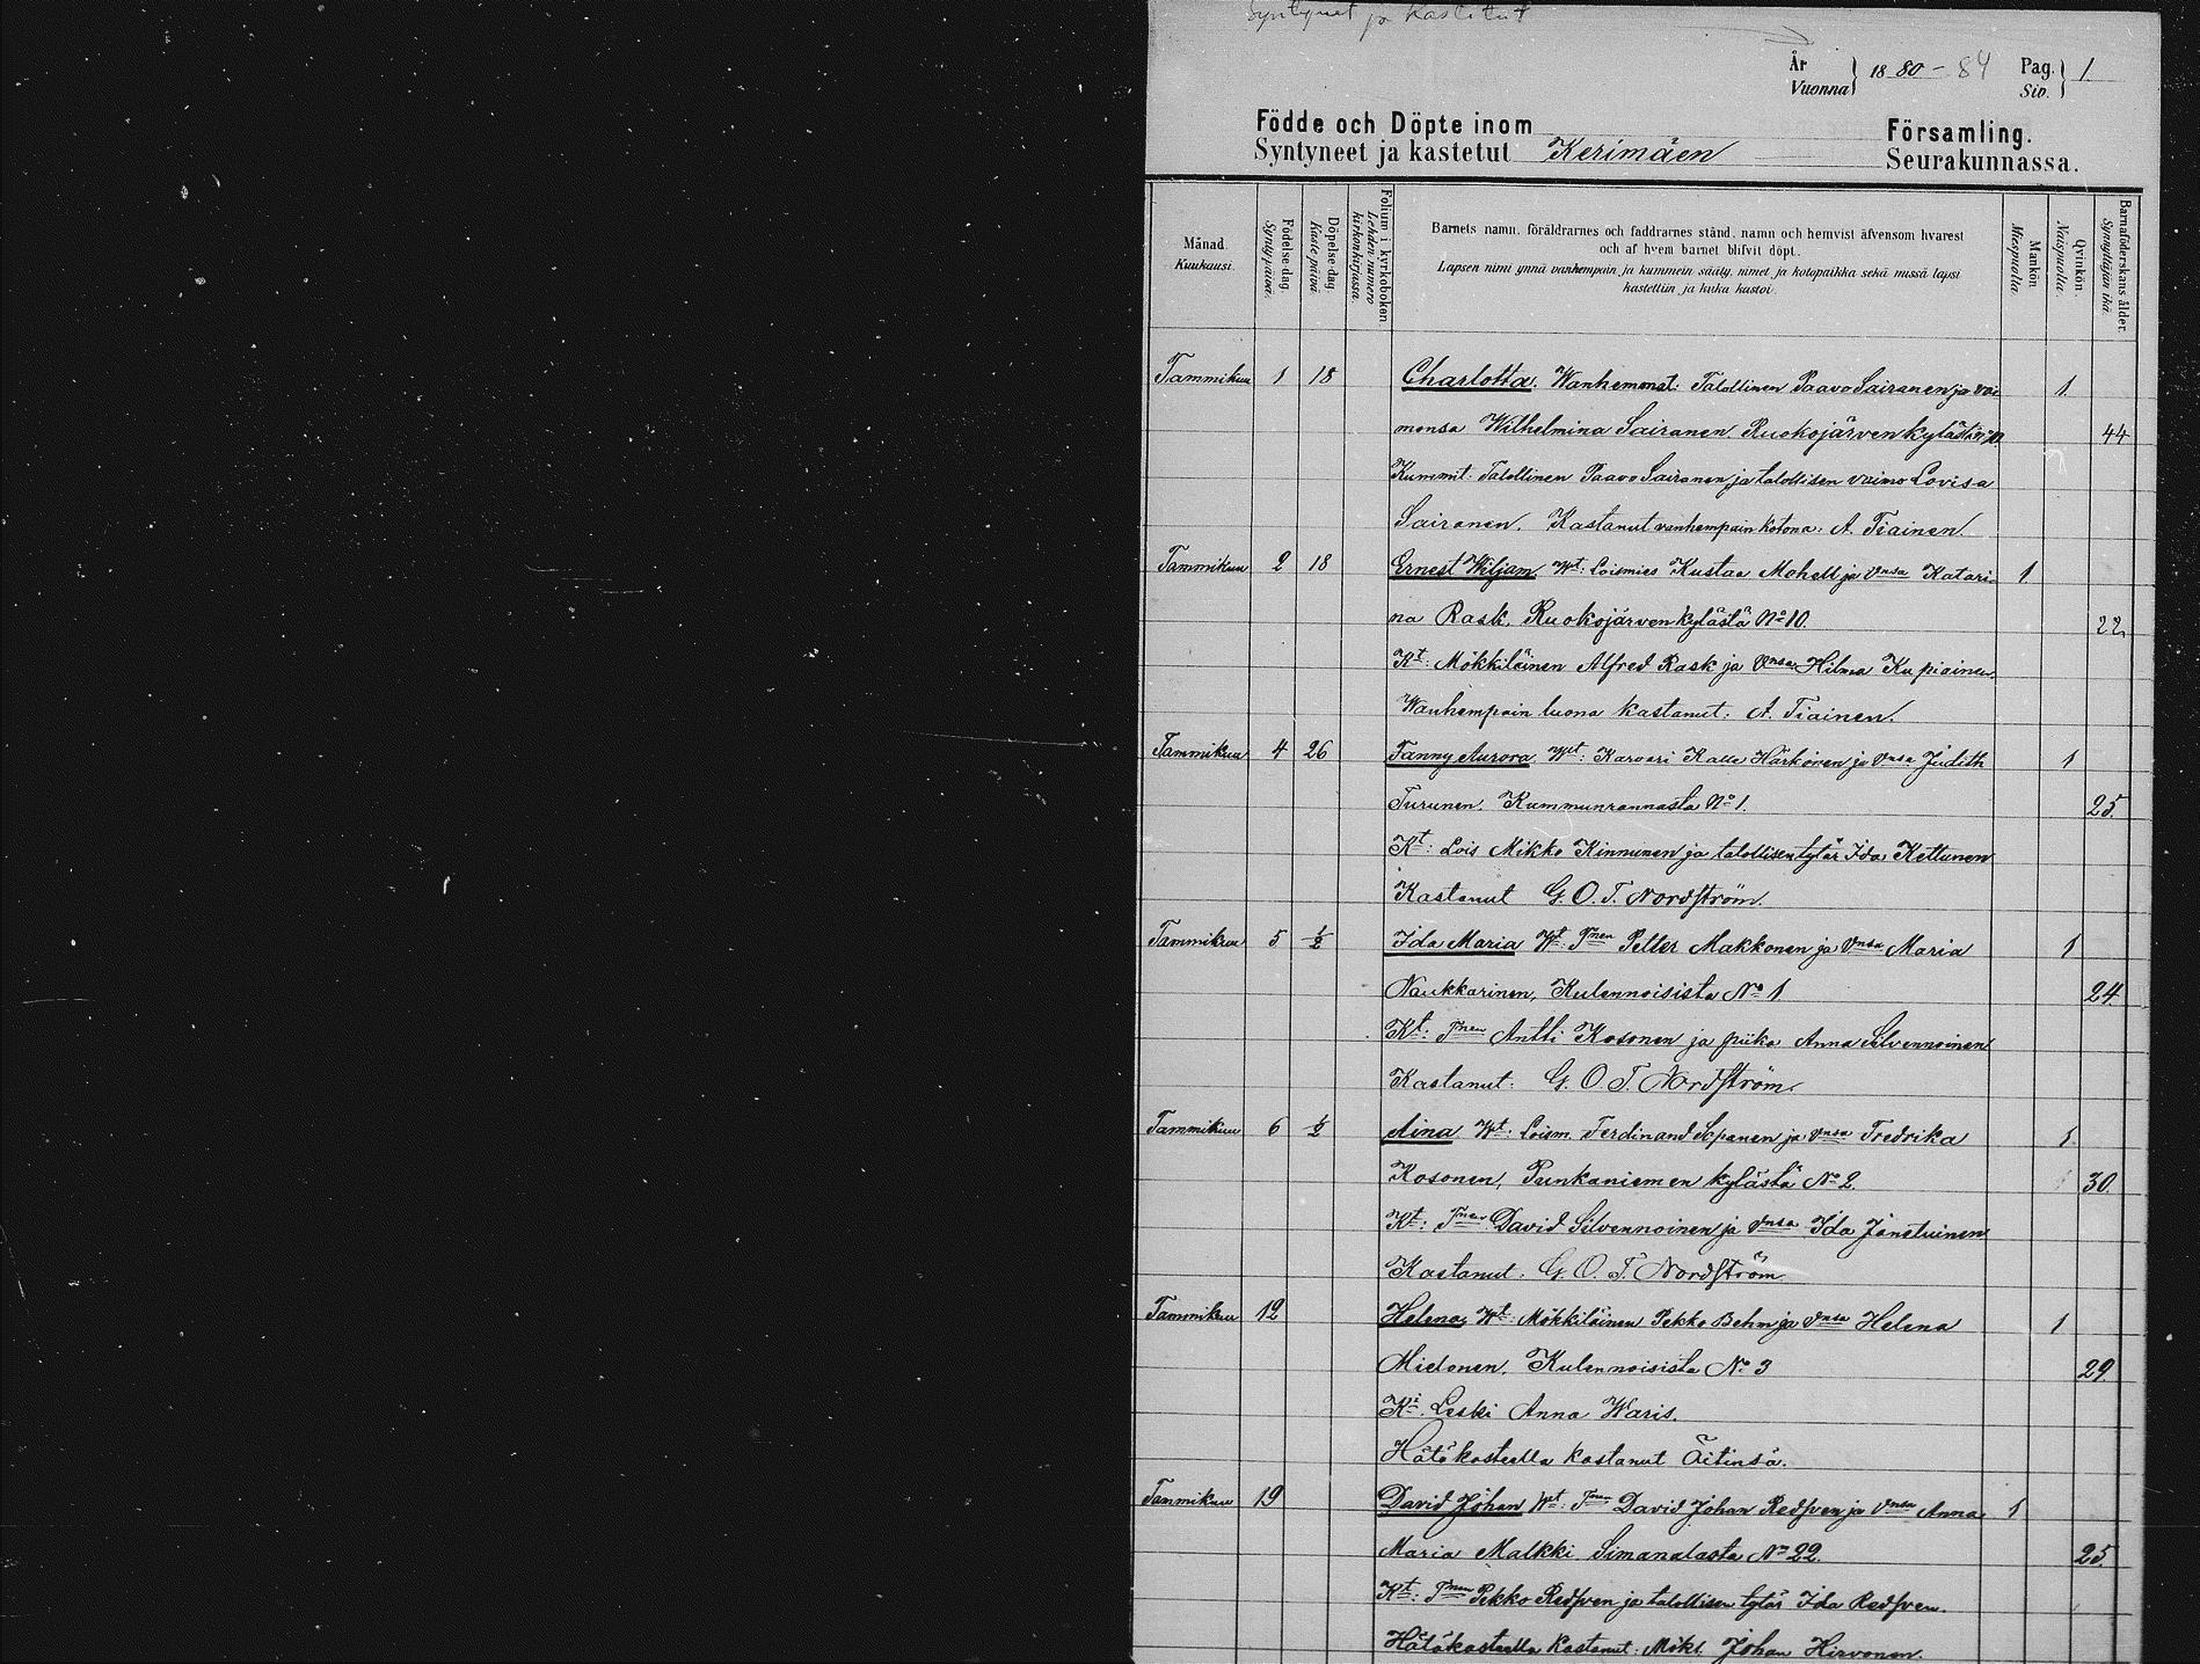 Syntynet ja Kastetut
År
Vuonna } 1880-84 Pag. Siv. } 1.
Födde och Döpte inom Församling.
Syntyneet ja kastetut Kerimäen Seurakunnassa.
Månad. Kuukausi.
Födelse dag. Synty päivä.
Döpelse-dag. Kaste päivä.
Folium i kyrkoboken Lehden numero kirkonkirjassa.
Barnets namn, föräldrarnes och faddrarnes stånd, namn och hemvist äfvensom hvarest
och af hvem barnet blifvit döpt.
Lapsen nimi ynnä vanhempain ja kummein sääty, nimet ja kotopaikka sekä missä lapsi
kastettiin ja kuka kastoi.
Mankön Miespuolia.
Qvinkön. Naispuolia.
Barnaföderskans ålder. Synnyttäjän ikä.
Tammikuu 1 18 Charlotta. Wanhemmat: Talollinen Paavo Sairanen ja vai 1.
monsa Wilhelmina Sairanen. Ruokojärven kylästä 44
Kummit. Talollinen Paavo Sairanen ja talollisen vaimo Lovisa
Sairanen. Kastanut vanhempain kotona: A. Tiainen.
Tammikuu 2 18 Ernest Wiljam. Wt: Loismies Kustaa Mohell ja vnsa Katari- 1.
na Rask. Ruokojärven kylästä No 10. 22
Kt: Mökkiläinen Alfred Rask ja vnsa Hilma Kupiainen.
Wanhempain luona kastanut: A. Tiainen.
Tammikuu 4 26 Fanny Aurora Wt: Karvari Kalle Härkönen ja vnsa Judith 1
Turunen. Kummunrannasta No 1. 25.
Kt: Lois Mikko Kinnunen ja talollisen tytär Ida Kettunen
Kastanut G. O. T. Nordström.
Tammikuu 5 1/2 Ida Maria Wt: Tnen Petter Makkonen ja vnsa Maria 1
Naukkarinen, Kulennoisista No 1 24.
Kt: Tnen Antti Kosonen ja piika Anna Silvennoinen
Kastanut: G. O. T. Nordström.
Tammikuu 6 1/2 Aina Wt: Loism. Ferdinand Sopanen ja vnsa Fredrika 1
Kosonen, Punkaniemen kylästä No 2. 30.
Kt: Tnen David Silvennoinen ja vnsa Ida Jänetuinen
Kastanut: G. O. T. Nordström
Tammikuu 12 Helena, Wt: Mökkiläinen Pekko Behm ja vnsa Helena 1
Mielonen, Kulennoisista No 3 29.
Ki. Leski Anna Waris.
Hätäkasteella kastanut Äitinsä.
Tammikuu 19 David Johan Wt: Tnen David Johan Redsven ja vnsa Anna 1
Maria Malkki Simanalasta No 22. 25.
Kt: Tnen Pekko Redsven ja talollisen tytär Ida Redsven.
Hätäkasteella kastanut: Mökl. Johan Hirvonen.